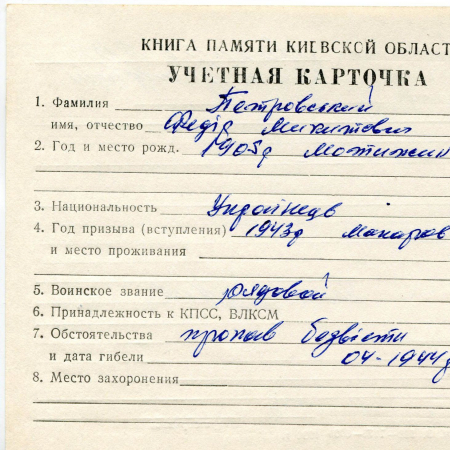 КНИГА ПАМЯТИ КИЕВСКОЙ ОБЛАСТ
УЧЕТНАЯ КАРТОЧКА
1. Фамилия Петровський
имя, отчество Федір Микитович
2. Год и место рожд. 1905р Мотижин
3. Национальность Українець
4. Год призыва (вступления) 1943р Макаров
и место проживания
5. Воинское звание рядовой
6. Принадлежность к КПСС, ВЛКСМ
7. Обстоятельства пропав безвісти
и дата гибели 04-1944р
8. Место захоронения